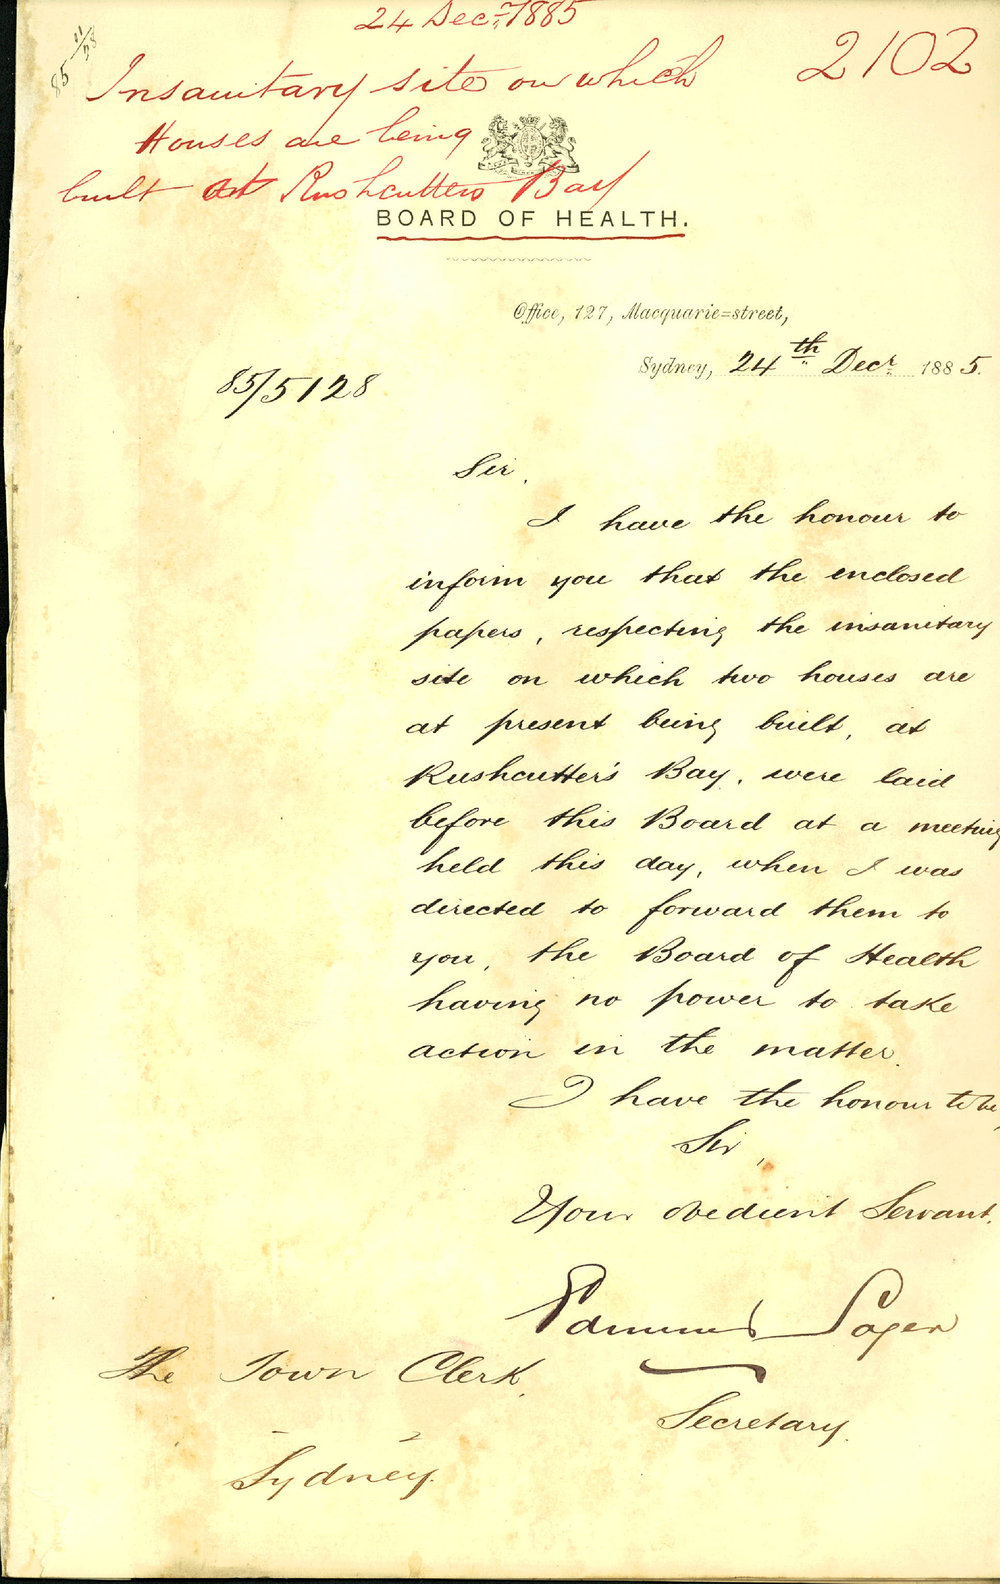 24 Decr. 1885
2102
Insanitary site on which
Houses are being
built at Rushcutters Bay
BOARD OF HEALTH.
Office, 127, Macquarie=street,
Sydney, 24th Decr. 1885.
85/5128
Sir,
I have the honour to
inform you that the enclosed
papers, respecting the insanitary
site on which two houses are
at present being built, at
Rushcutter's Bay, were laid
before this Board at a meeting
held this day, when I was
directed to forward them to
you, the Board of Health
having no power to take
action in the matter.
I have the honour to be,
Sir,
Your obedient Servant.
Edmund Sager
Secretary.
The Town Clerk,
Sydney.